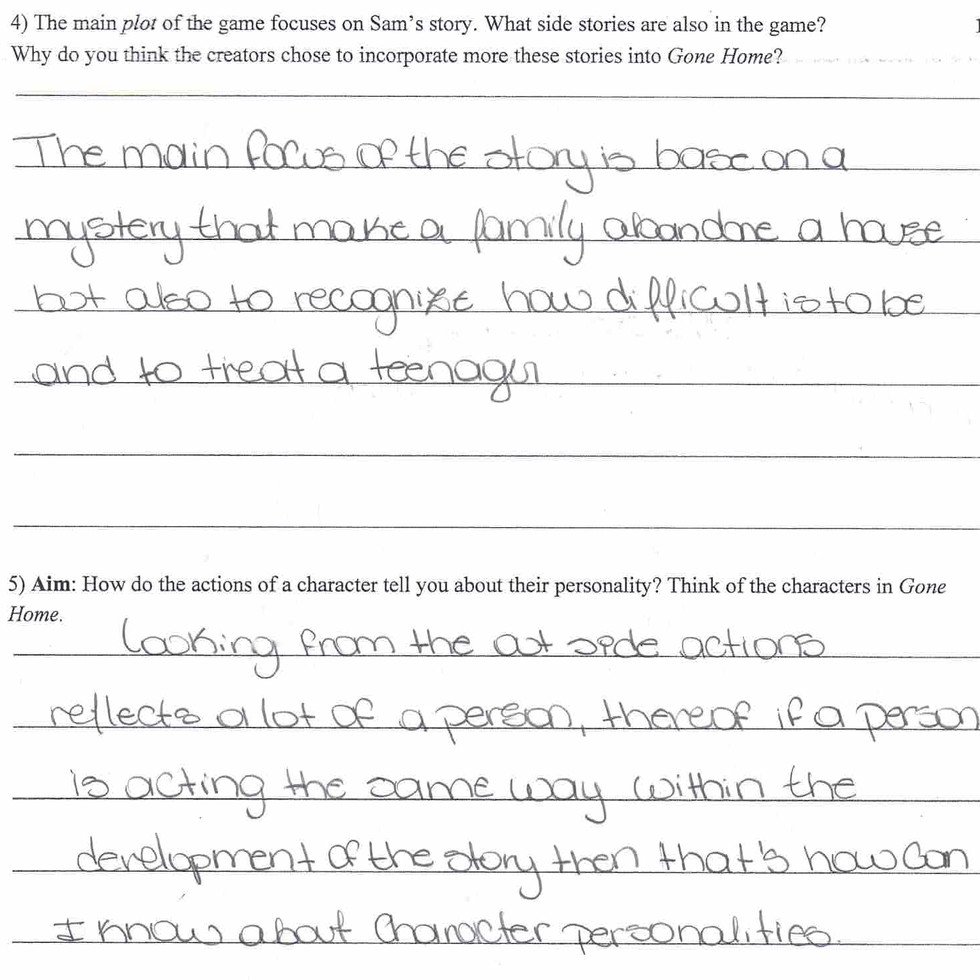 4) The main plot of the game focuses on Sam's story. What side stories are also in the game?
Why do you think the creators chose to incorporate more these stories into Gone Home?
The main focus of the story is base on a
mystery that make a family abandone a house
but also to recognize how difficult is to be
and to treat a teenager
5) Aim: How do the actions of a character tell you about their personality? Think of the characters in Gone
Home.
Looking from the out side actions
reflects a lot of a person, thereof if a person
is acting the same way within the
development of the story then that's how Can
I know about Character personalities.